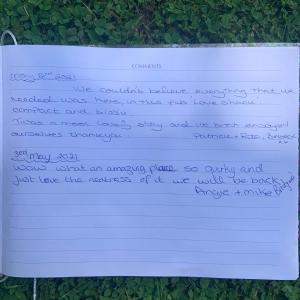 COMMENTS
May 2nd 2021
We couldn't believe everything that we
needed was here, in this fab 'Love Shack'
compact and
Twas a very lovely stay and we both enjoyed
ourselves thankyou!
3rd May 2021
Wow what an amazing place so quirky and
just love the neatness of it we will be back
Angie + Mike